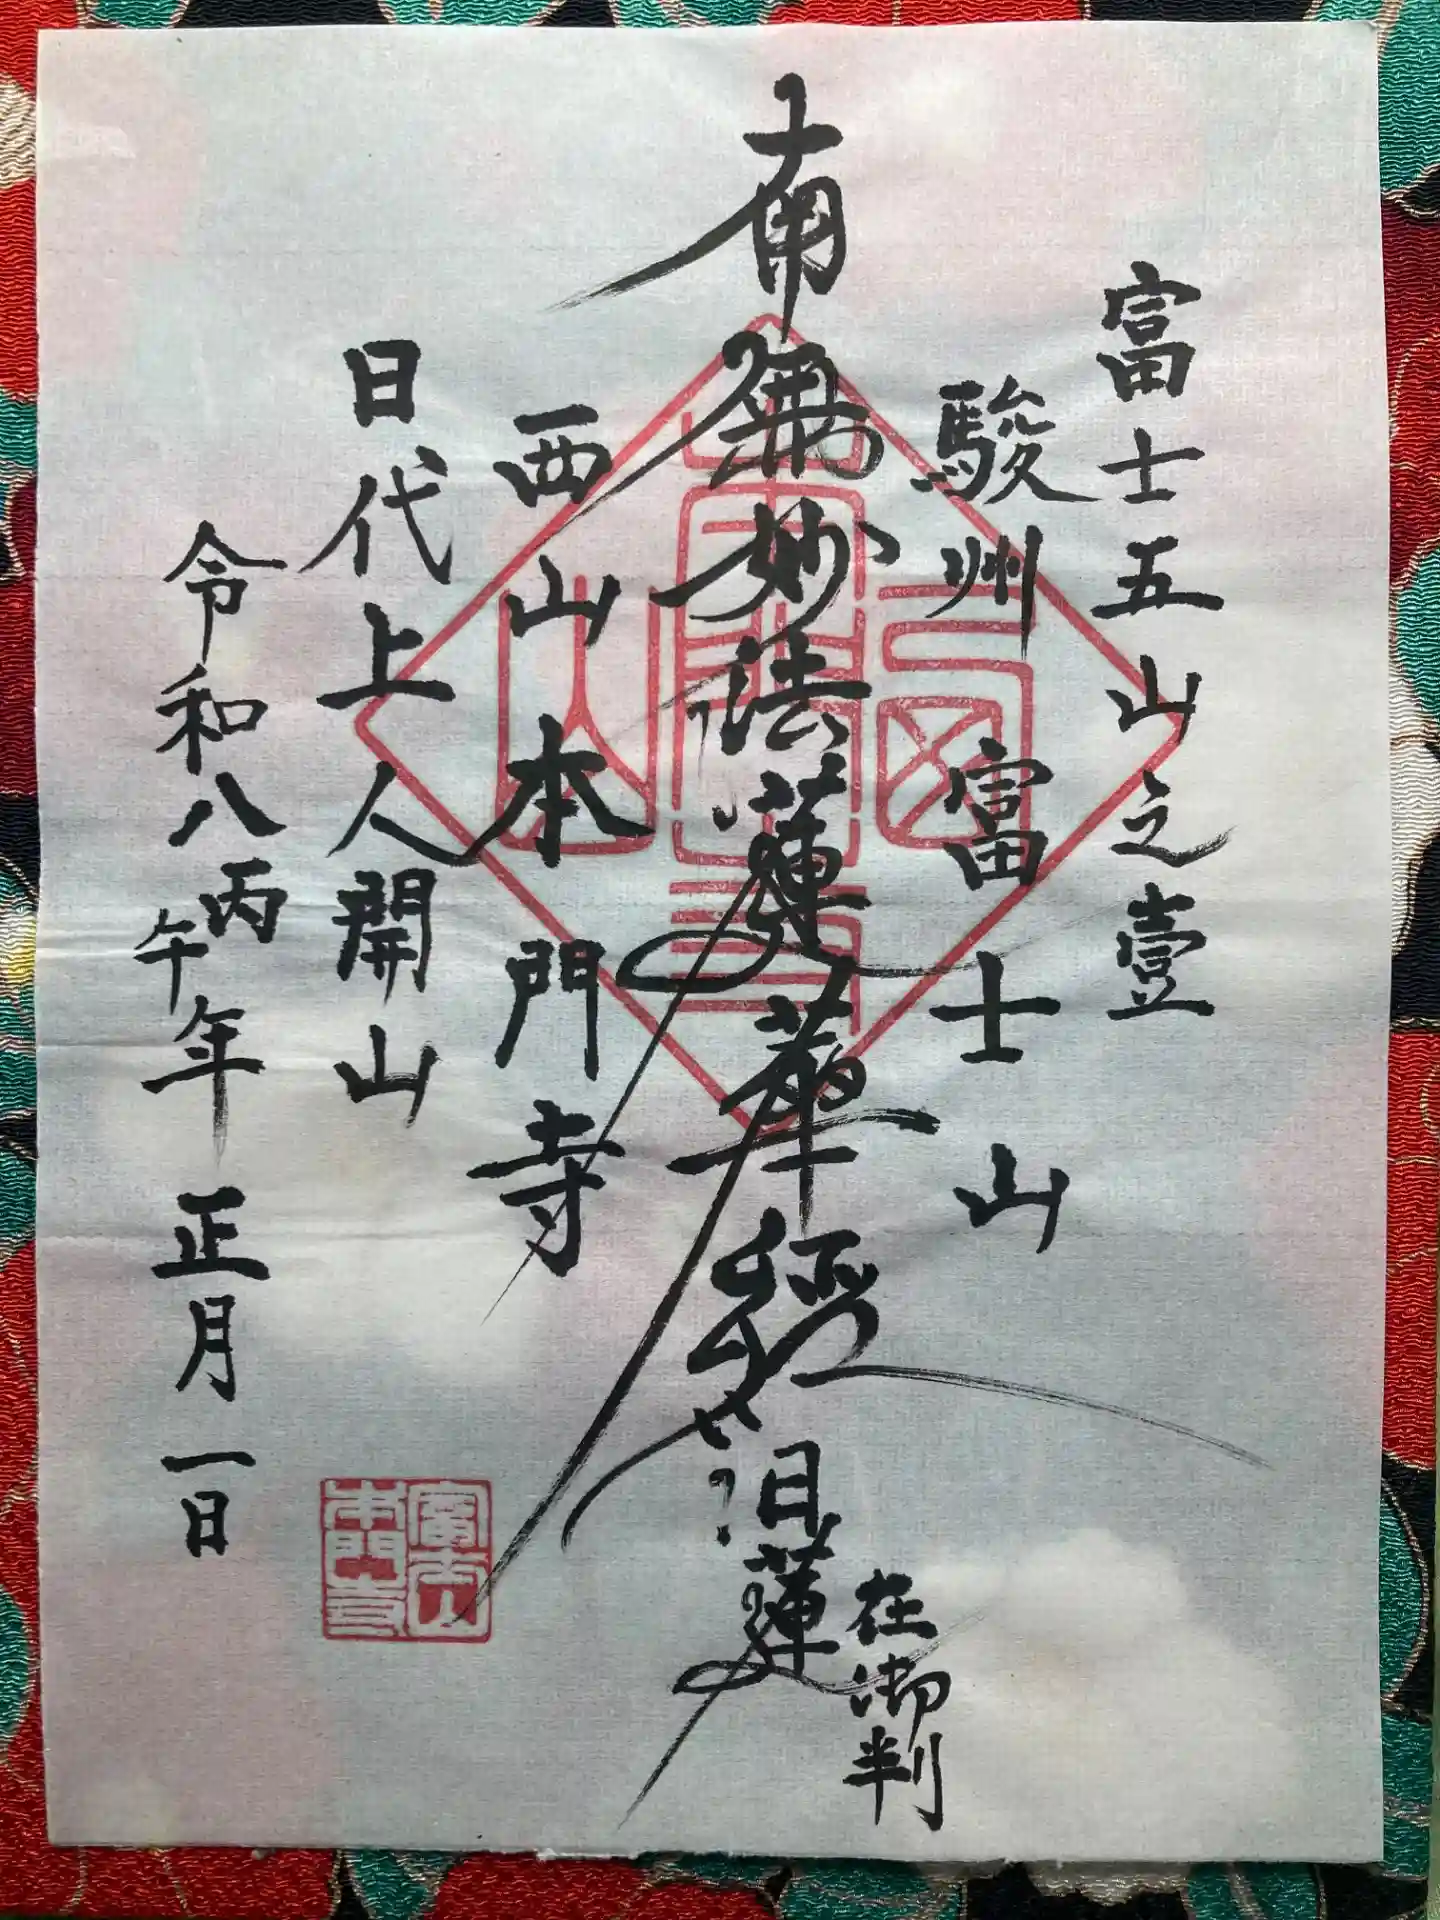 富士五山之壹
駿州富士山
南無妙法蓮華經 日蓮
在御判
西山本門寺
日代上人開山
令和八丙午年正月一日
富士山
本門寺